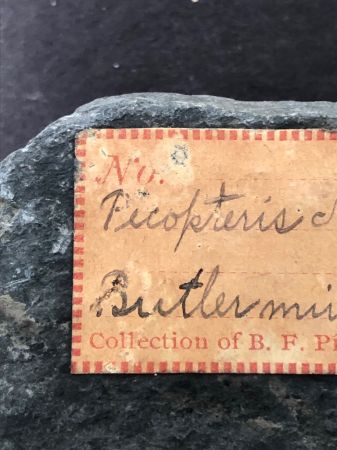 No.
Pecopteris
Butler
Collection of B. F.